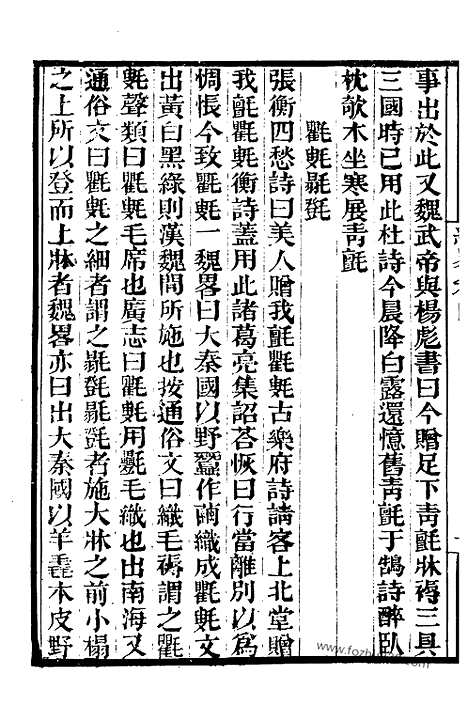 事出於此又魏武帝與楊彪書曰今贈足下靑氈牀褥三具
三國時已用此杜詩今晨降白露還憶舊靑氈于鵠詩醉臥
枕欹木坐寒展靑氈
氍毹毾㲪
張衡四愁詩曰美人贈我氈氍毹古樂府詩請客上北堂贈
我氈氍毹衡詩蓋用此諸葛亮集詔荅恢曰行當離別以爲
惆悵今致氍毹一魏畧曰大秦國以野蠶作繭織成氍毹文
出黃白黑綠則漢魏間所施也按通俗文曰織毛褥謂之氍
毹聲類曰氍毹毛席也廣志曰氍毹用毛織也出南海又
通俗文曰氍毹之細者謂之毾㲪毾㲪者施大牀之前小榻
之上所以登而上牀者魏畧亦曰出大秦國以羊毳木皮野
www.fozhu920.com